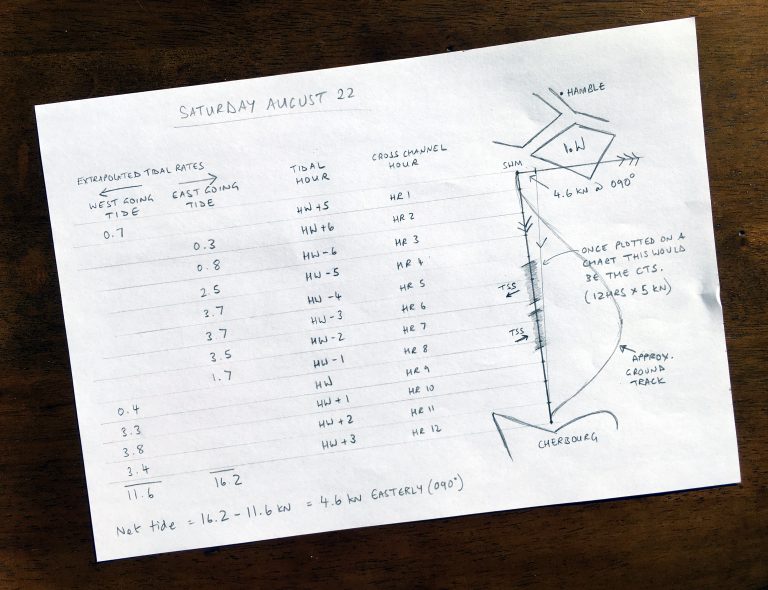 SATURDAY AUGUST 22
EXTRAPOLATED TIDAL RATES
WEST GOING TIDE
EAST GOING TIDE
TIDAL HOUR
CROSS CHANNEL HOUR
0.7 HW+5 HR 1
0.3 HW+6 HR 2
0.8 HW-6 HR 3
2.5 HW-5 HR 4
3.7 HW-4 HR 5
3.7 HW-3 HR 6
3.5 HW-2 HR 7
1.7 HW-1 HR 8
0.4 HW HR 9
3.3 HW+1 HR 10
3.8 HW+2 HR 11
3.4 HW+3 HR 12
11.6 16.2
Net tide = 16.2 - 11.6 KN = 4.6 KN EASTERLY (090°)
HAMBLE
I.W
SWM
4.6 KN @ 090°
ONCE PLOTTED ON A
CHART THIS WOULD
BE THE CTS.
(12HRS x 5 KN)
TSS
TSS
APPROX.
GROUND
TRACK
CHERBOURG